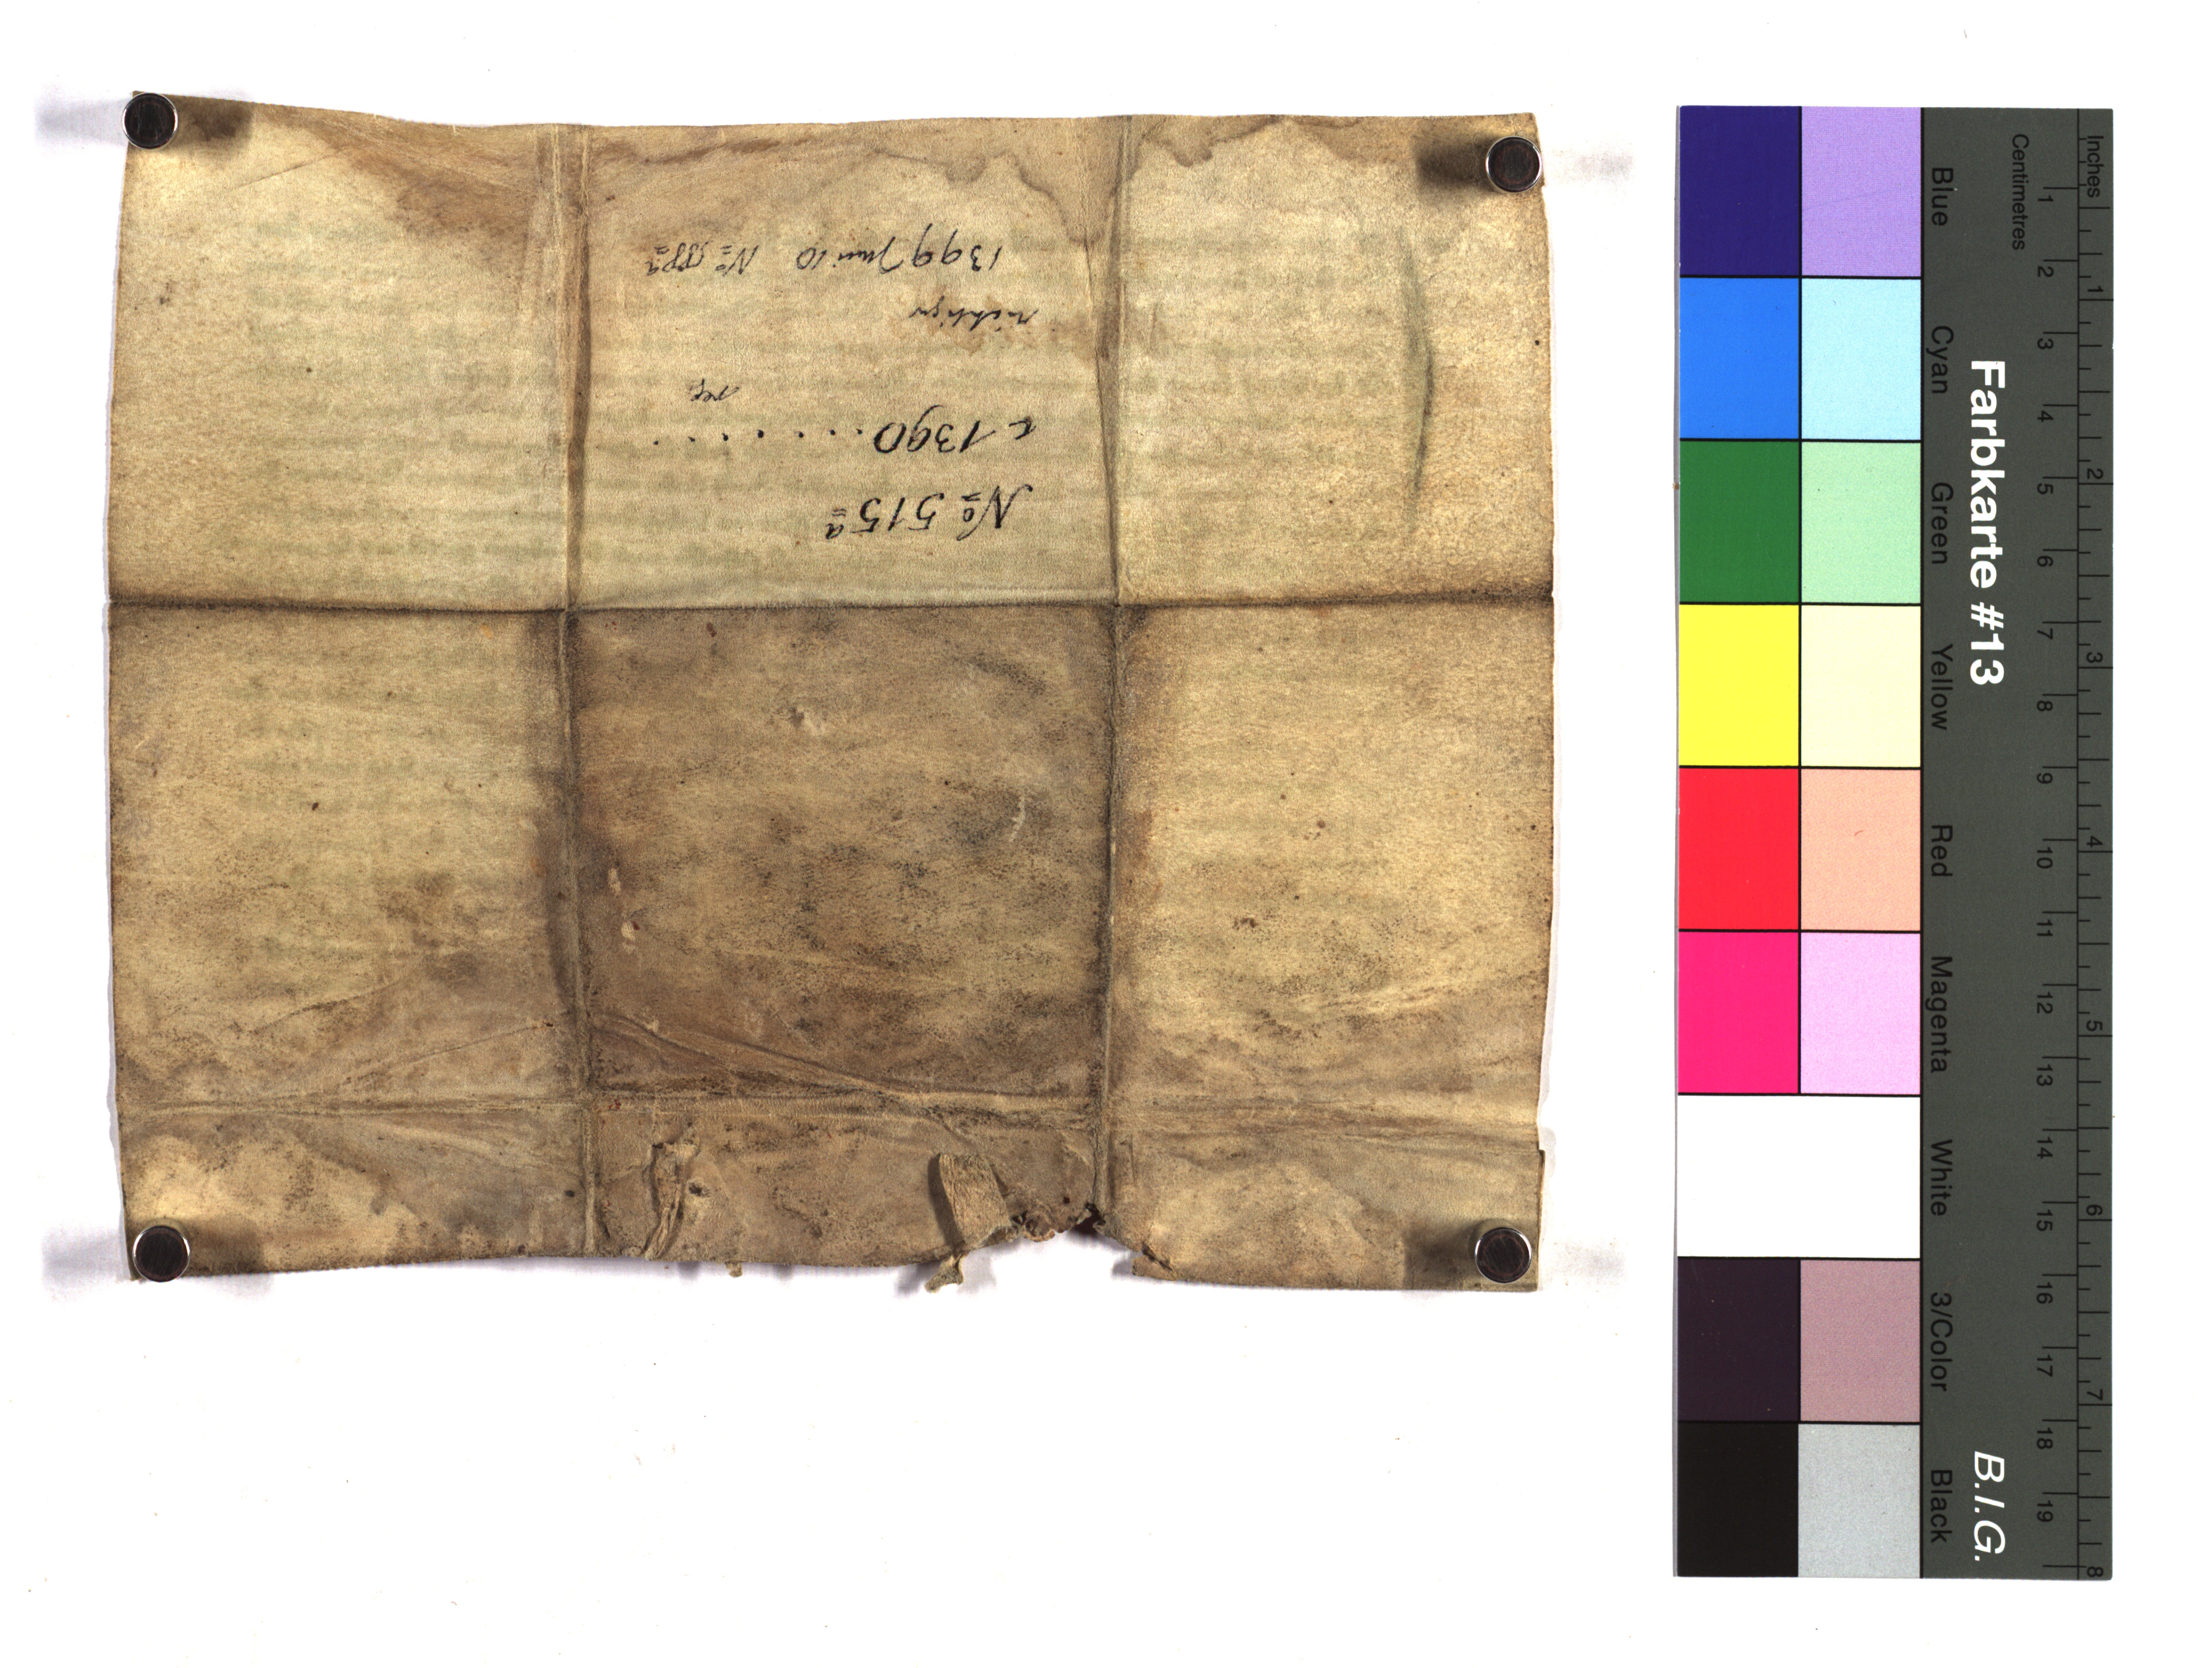 No 515a
c 1390 . . . . . . . .
richtiger
1399 Juni 10 No
Inches
Centimetres
1 2 3 4 5 6 7 8
1 2 3 4 5 6 7 8 9 10 11 12 13 14 15 16 17 18 19
Farbkarte #13 B.I.G.
Blue Cyan Green Yellow Red Magenta White 3/Color Black